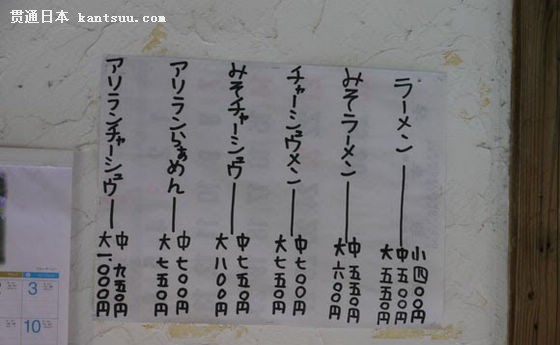 贯通日本 kantsuu.com
ラーメン 小 四〇〇円
中 五〇〇円
大 五五〇円
みそラーメン 中 五五〇円
大 六〇〇円
チャーシュウメン 中 七〇〇円
大 七五〇円
みそチャーシュウ 中 七五〇円
大 八〇〇円
アリランらぁめん 中 七〇〇円
大 七五〇円
アリランチャーシュウ 中 九五〇円
大 一、〇〇〇円
3
10